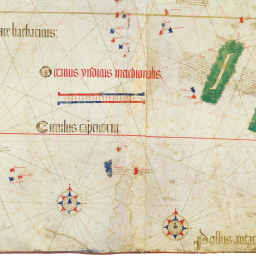 mare barbaricus:
Oceanus yndicus meridionalis.
Circulus capricorni:
Pollus antar